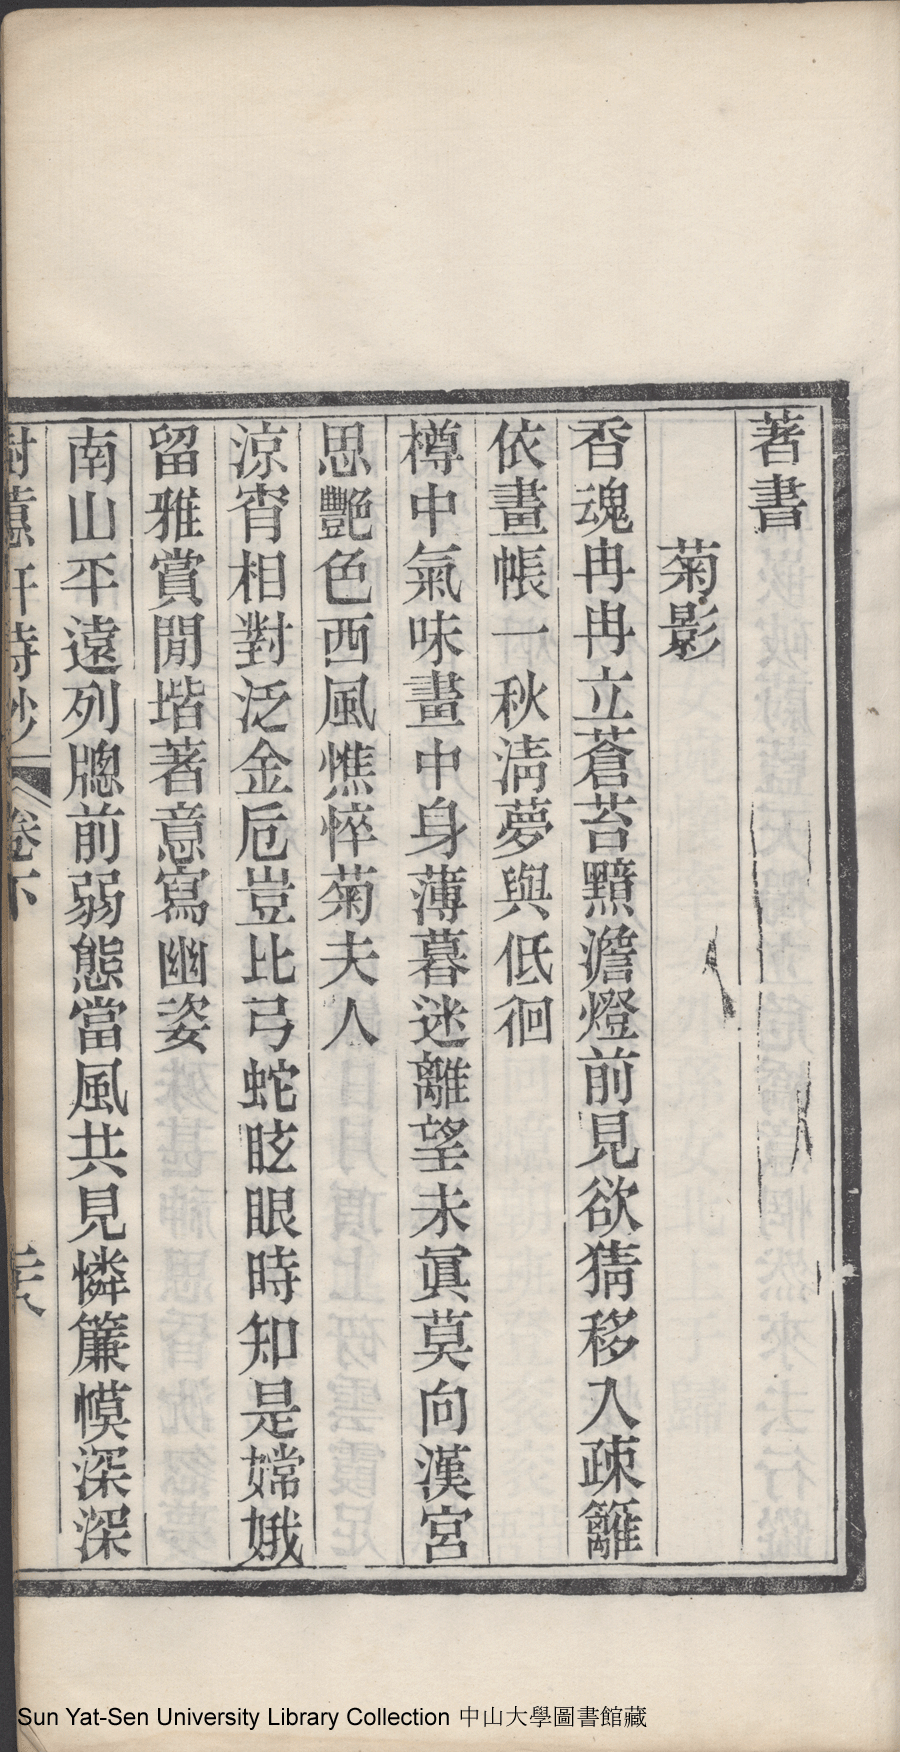 著書
菊影
香魂冉冉立蒼苔黯澹燈前見欲猜移入疎籬
依畫帳一秋淸夢與低徊
樽中氣味畫中身薄暮迷離望未眞莫向漢宮
思艷色西風憔悴菊夫人
涼宵相對泛金卮豈比弓蛇眩眼時知是嫦娥
留雅賞閒堦著意寫幽姿
南山平遠列牕前弱態當風共見憐簾幙深深
樹蕙軒詩鈔 卷下
Sun Yat-Sen University Library Collection 中山大學圖書館藏